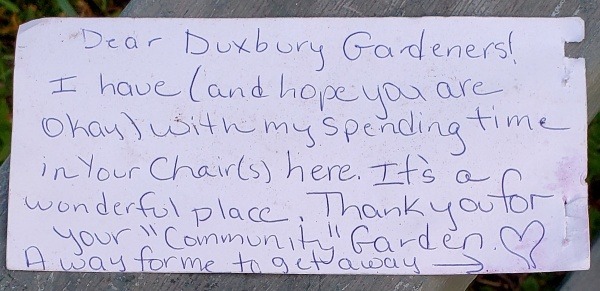 Dear Duxbury Gardeners!
I have (and hope you are
Okay) with my spending time
in Your Chair(s) here. It's a
wonderful place. Thank you for
your "Community" Garden. ♡
A way for me to get away →